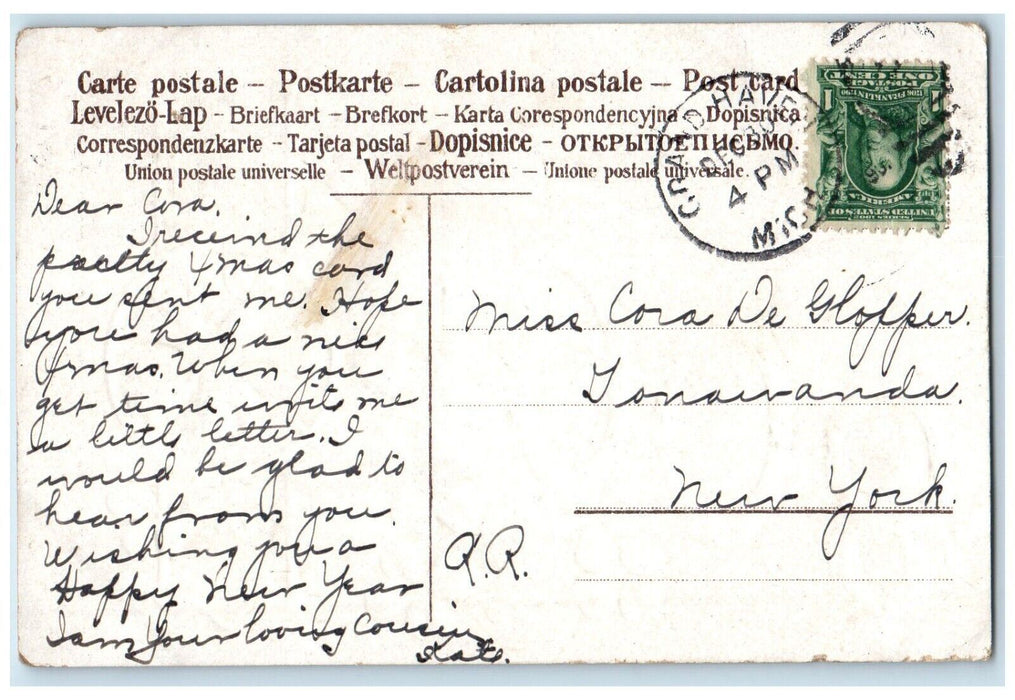 Carte postale – Postkarte – Cartolina postale – Post card
Levelezö-Lap - Briefkaart - Brefkort - Karta Corespondencyjna - Dopisnica
Correspondenzkarte - Tarjeta postal - Dopisnice - ОТКРЫТОЕ ПИСЬМО.
Union postale universelle - Weltpostverein - Unione postale universale.
GRAND HAVEN
DEC 30
4 PM
MICH
POSTAGE ONE CENT
1
FRANKLIN
SERIES 1902
UNITED STATES OF AMERICA
Dear Cora,
I receivd the
pretty Xmas card
you sent me. Hope
you had a nice
Xmas. When you
get time write me
a little letter. I
would be glad to
hear from you.
Wishing you a
Happy New Year
I am Your loving Cousin
Kate.
Miss Cora De Glopper.
Tonawanda.
New York.
R.R.